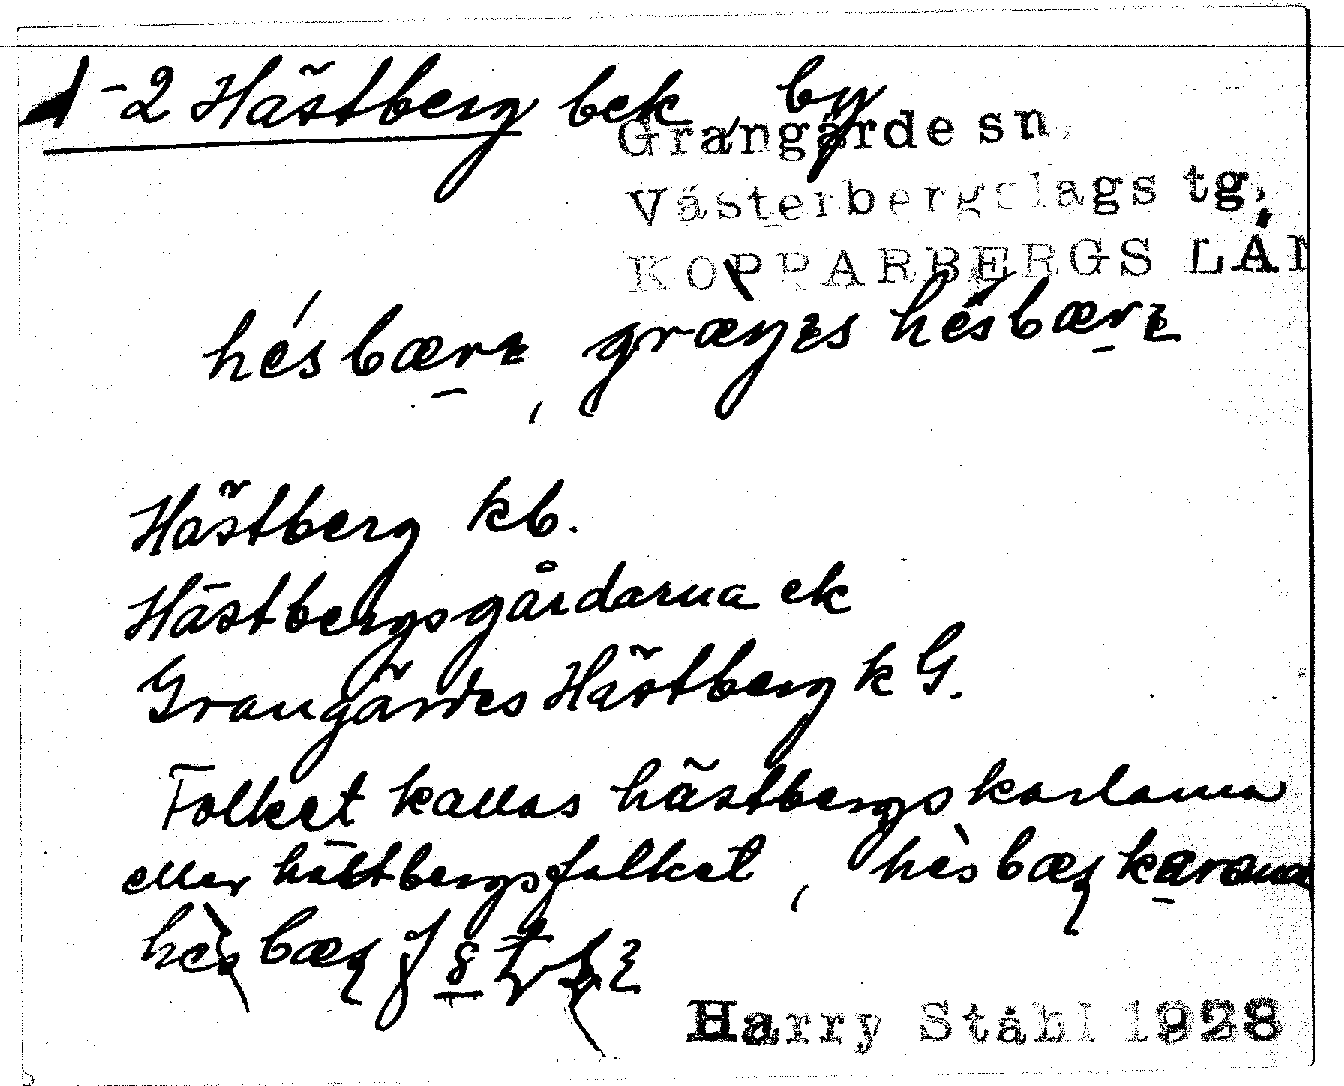 1-2 Hästberg bek by
Grangärde sn.
Västerbergslags tg.
KOPPARBERGS LÄN
Hästberg kb.
Hästbergsgårdarna ek
Grangärdes Hästberg k G.
Folket kallas hästbergskarlarna
eller hästbergsfolket,
Harry Ståhl 1928